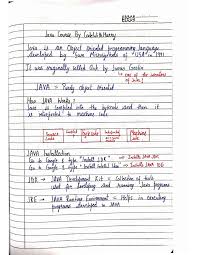 Java Course By CodeWithHarry
Java is an Object oriented programming language
developed by Sun Microsystems of USA in 1991
It was originally called Oak by James Goslin
one of the inventors
of Java!
JAVA → Purely Object Oriented
How JAVA Works?
Java is compiled into the bytecode and then it
is interpreted to machine code
Source Code
Compiled
Bytecode
Interpreted
Machine Code
JAVA Installation
Go to Google & type "Install JDK" → Installs JAVA JDK
Go to Google & type "Install
JDK → JAVA Development Kit → Collection of tools
used for developing and running Java programs
JRE → JAVA Runtime Environment → Helps in executing
programs developed in JAVA